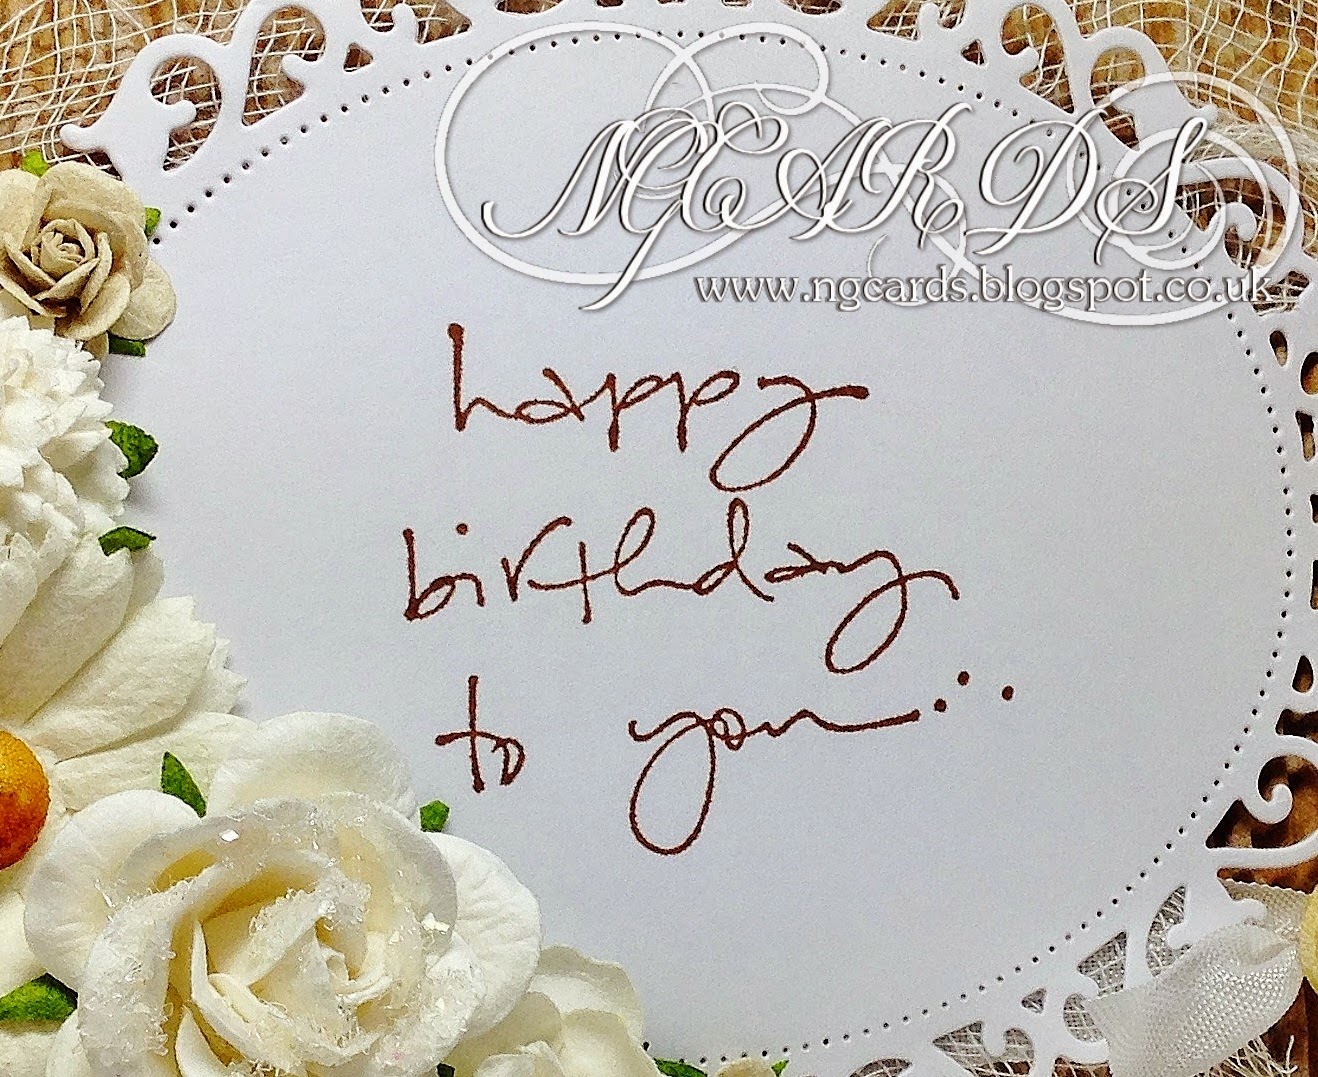 NGCARDS
www.ngcards.blogspot.co.uk
happy
birthday
to you...